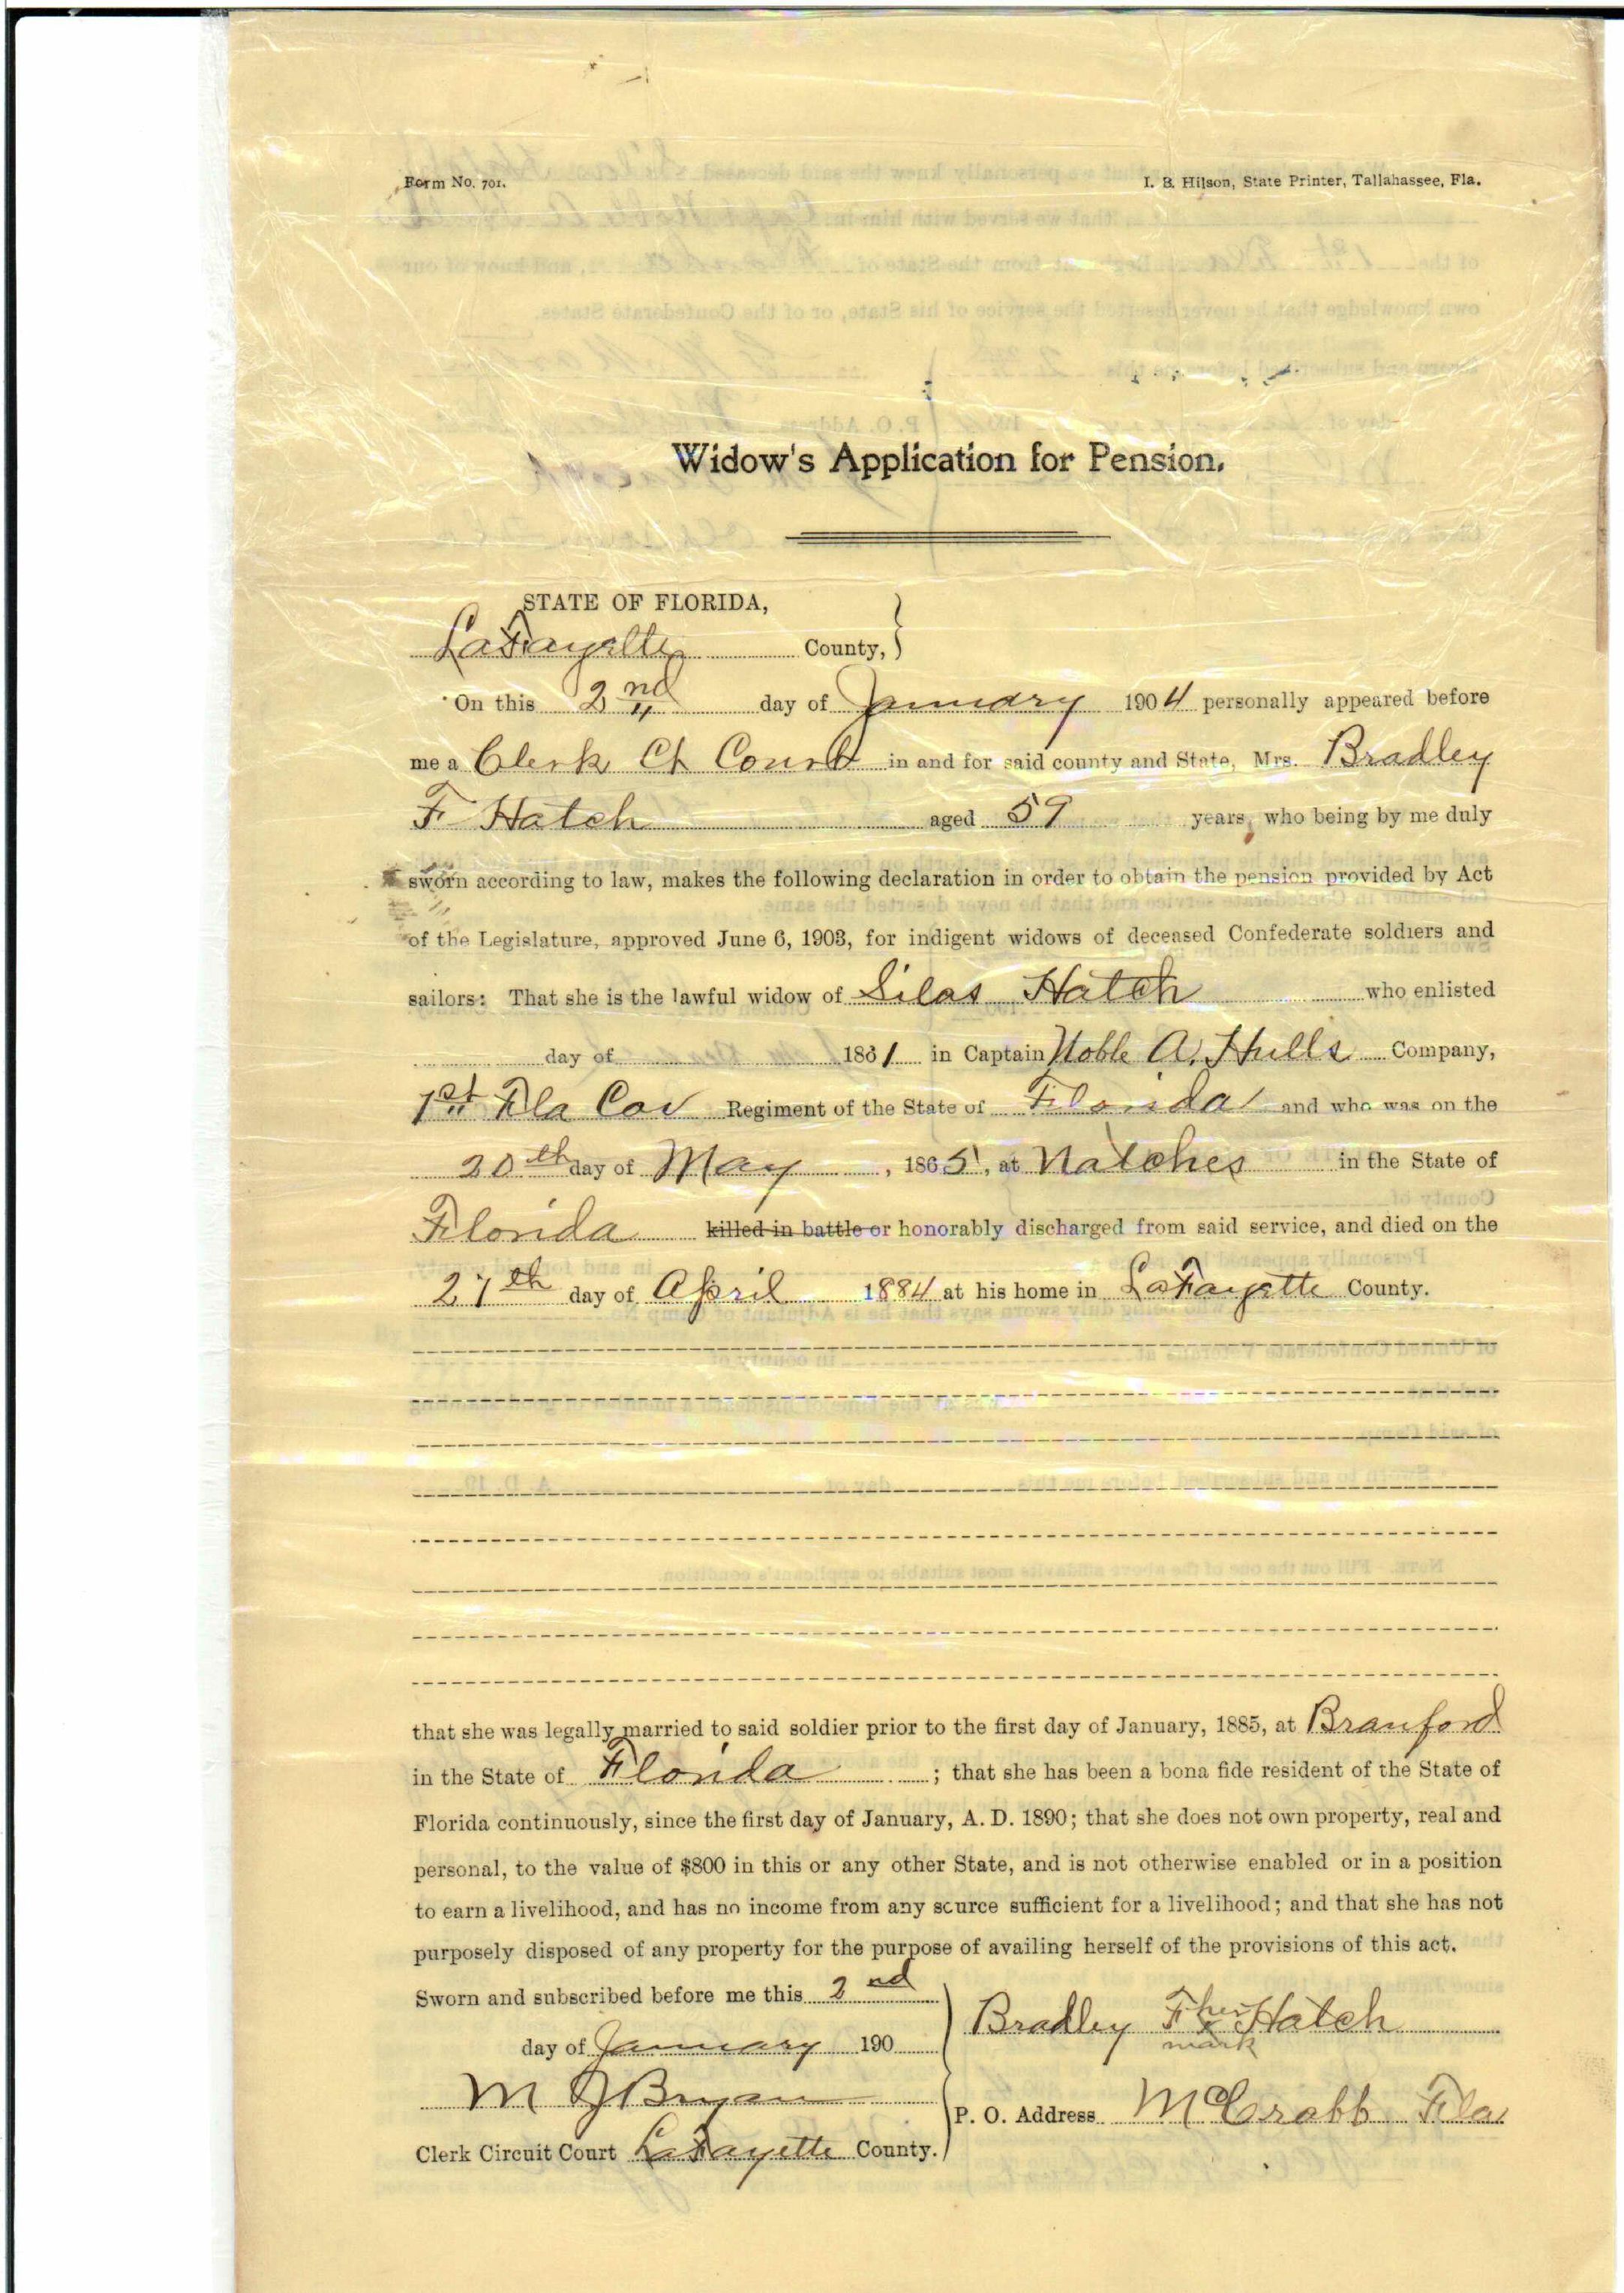 Form No. 701.
I. B. Hilson, State Printer, Tallahassee, Fla.
Widow's Application for Pension.
STATE OF FLORIDA,
LaFayette County,
On this 2nd day of January 1904 personally appeared before
me a Clerk Ct Court in and for said county and State, Mrs. Bradley
F Hatch aged 59 years, who being by me duly
sworn according to law, makes the following declaration in order to obtain the pension provided by Act
of the Legislature, approved June 6, 1903, for indigent widows of deceased Confederate soldiers and
sailors: That she is the lawful widow of Silas Hatch who enlisted
day of 1861 in Captain Noble A. Hulls Company,
1st Fla Cav Regiment of the State of Florida and who was on the
20th day of May, 1865, at Natches in the State of
Florida killed in battle or honorably discharged from said service, and died on the
27th day of April 1884 at his home in LaFayette County.
that she was legally married to said soldier prior to the first day of January, 1885, at Branford
in the State of Florida; that she has been a bona fide resident of the State of
Florida continuously, since the first day of January, A. D. 1890; that she does not own property, real and
personal, to the value of $800 in this or any other State, and is not otherwise enabled or in a position
to earn a livelihood, and has no income from any source sufficient for a livelihood; and that she has not
purposely disposed of any property for the purpose of availing herself of the provisions of this act.
Sworn and subscribed before me this 2nd
day of January 190
M J Bryan
Clerk Circuit Court LaFayette County.
Bradley F her x mark Hatch
P. O. Address McCrabb Fla